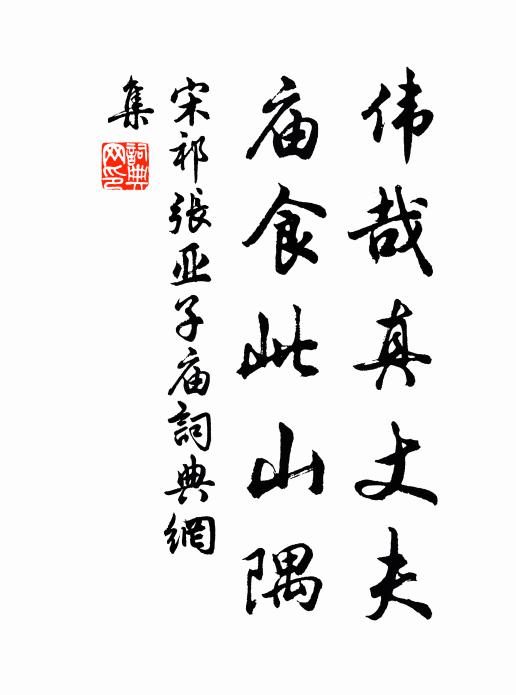 伟哉真丈夫
庙食此山隅
宋祁張亚子庙詞典網
集
詞典网印